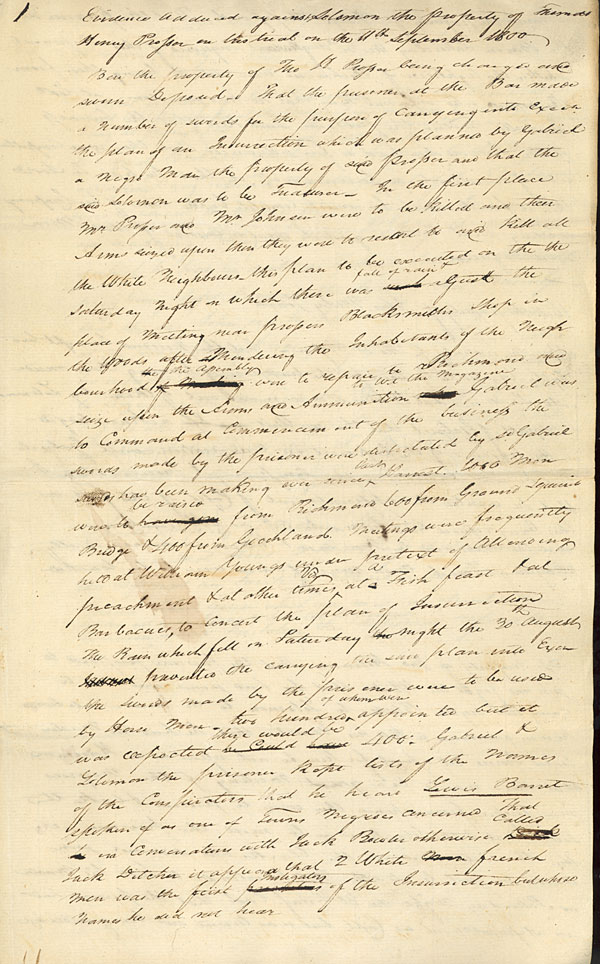 1
Evidence adduced against Solomon the property of Thomas
Henry Prosser on his trial on the 11th September 1800
Ben the property of Tho H. Prosser being charged and
sworn Deposed - That the prisoner at the Bar made
a number of swords for the purpose of carrying into Execn
the plan of an Insurrection which was planned by Gabriel
a Negro Man the property of said Prosser and that the
said Solomon was to be Treasurer - In the first place
Mr Prosser and Mr Johnson were to be killed and their
Arms seized upon then they were to resort to and kill all
the White Neighbours this plan to be executed on the the
Saturday night on which there was
fall of rain
the
place of Meeting near Prossers Blacksmiths Shop in
the Woods after Murdering the Inhabitants of the Neigh
bourhood
the assembly
were to repair to Richmond and
seize upon the Arms and Ammunition
to wit the Magazine
Gabriel was
to Command at Commencement of the business the
swords made by the prisoner were
by sd Gabriel
has been making ever since
last
Harvest 1000 Men
were to
be raised
from Richmond 600 from Ground Squirrel
Bridge & 400 from Goochland. Meetings were frequently
held at William Youngs under pretext of Attending
preachment & at other times
Viz
at a Fish feast & at
Barbacues, to concert the plan of Insurrection
The Rain which fell on Saturday night the 30th August
prevented the carrying the said plan into Exn
the swords made by the prisoner were to be used
by Horse Men - two hundred
of whom were
appointed but it
was expected
there would be
400. Gabriel &
Solomon the prisoner kept lists of the Names
of the Conspirators that he heard Lewis Barret
spoken of as one of Towns Negroes concerned
That
in Conversations with Jack Bowler otherwise
Called
Jack Ditcher it appeared that 2 White french
Men was the first
instigators
of the Insurrection but whose
Names he did not hear